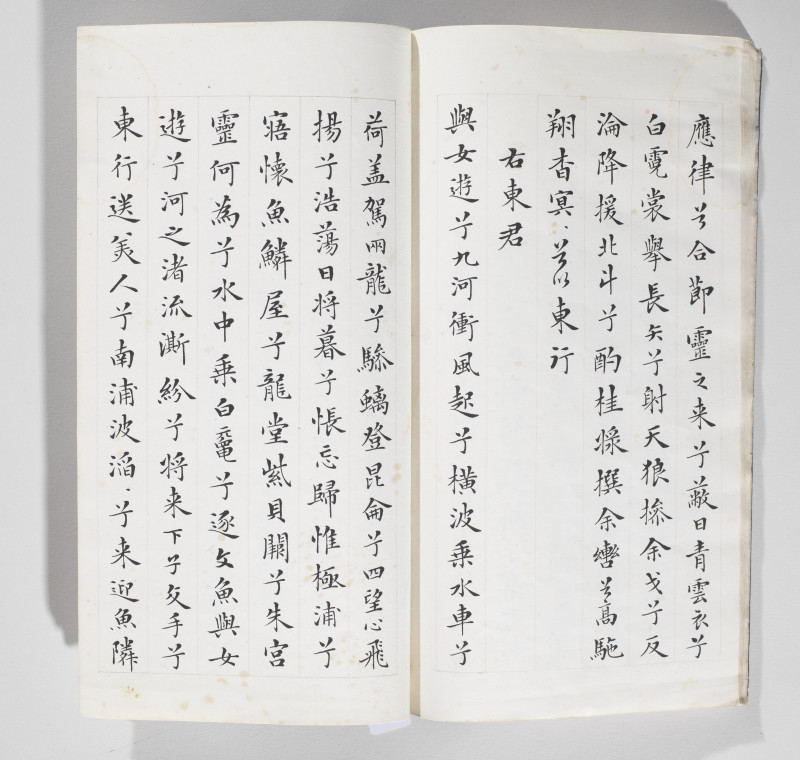 應律兮合節靈之来兮蔽日青雲衣兮
白霓裳舉長矢兮射天狼摻余弧兮反
淪降援北斗兮酌桂漿撰余轡兮高駞
翔杳冥〻兮以東行
右東君
與女遊兮九河衝風起兮橫波乗水車兮
荷盖駕兩龍兮驂螭登昆侖兮四望心飛
揚兮浩蕩日将暮兮悵忘歸惟極浦兮
寤懷魚鱗屋兮龍堂紫貝闕兮朱宮
靈何為兮水中乗白黿兮逐文魚與女
遊兮河之渚流澌紛兮将来下子交手兮
東行送美人兮南浦波滔〻兮来迎魚隣